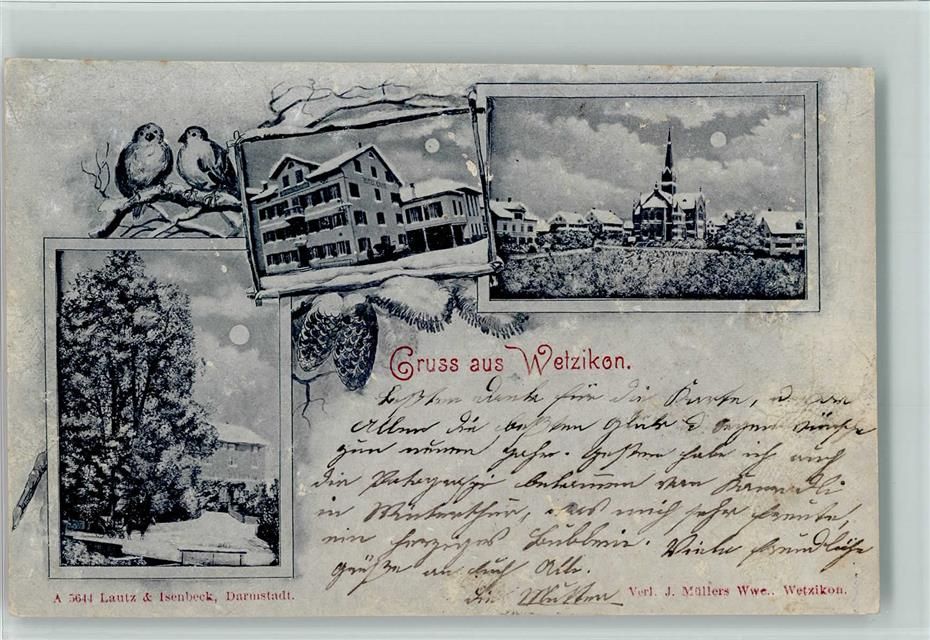 Gruss aus Wetzikon.
Besten Dank für die Karte, 
Allen die besten Glück & Segenswünsche
zum neuen Jahr. Gestern habe ich auch
die Photographie bekommen von
in Winterthur, was mich sehr freute,
ein herziges Büblein. Viele freundliche
Grüße an Euch Alle.
die Mutter
A 5644 Lautz & Isenbeck, Darmstadt.
Verl. J. Müllers Wwe., Wetzikon.